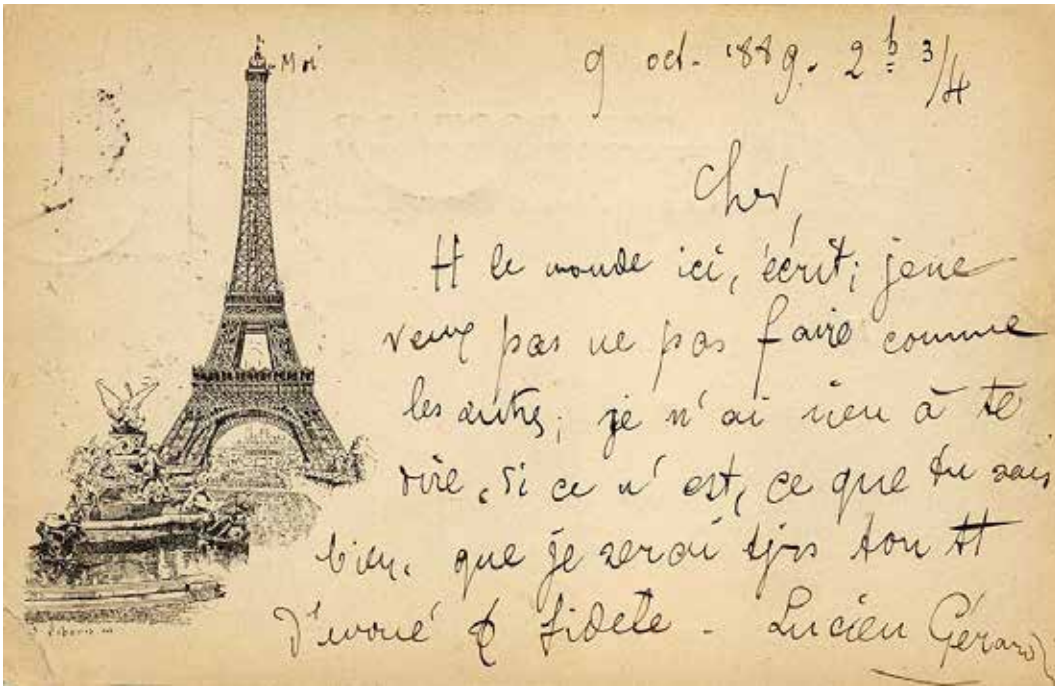 Moi
9 oct. 1889. 2 h 3/4
Cher,
tt le monde ici, écrit; je ne
veux pas ne pas faire comme
les autres; je n'ai rien à te
dire, si ce n'est, ce que tu sais
bien, que je serai tjrs ton tt
dévoué & fidele - Lucien Gérard